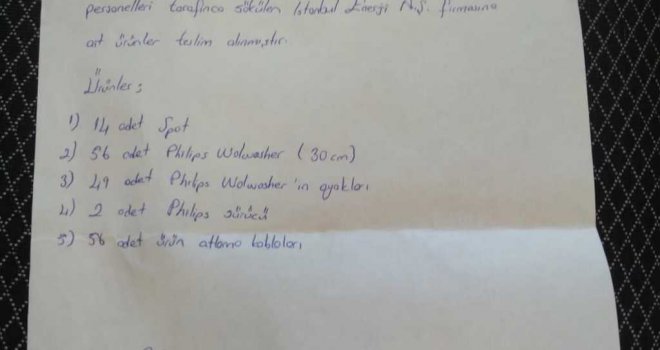 personelleri tarafınca sökülen İstanbul Enerji A.Ş. firmasına
ait ürünler teslim alınmıştır.
Ürünler;
1) 14 adet Spot
2) 56 adet Philips Wolwasher (30cm)
3) 49 adet Philips Wolwasher'ın ayakları
4) 2 adet Philips sürücü
5) 56 adet ürün atlama kabloları